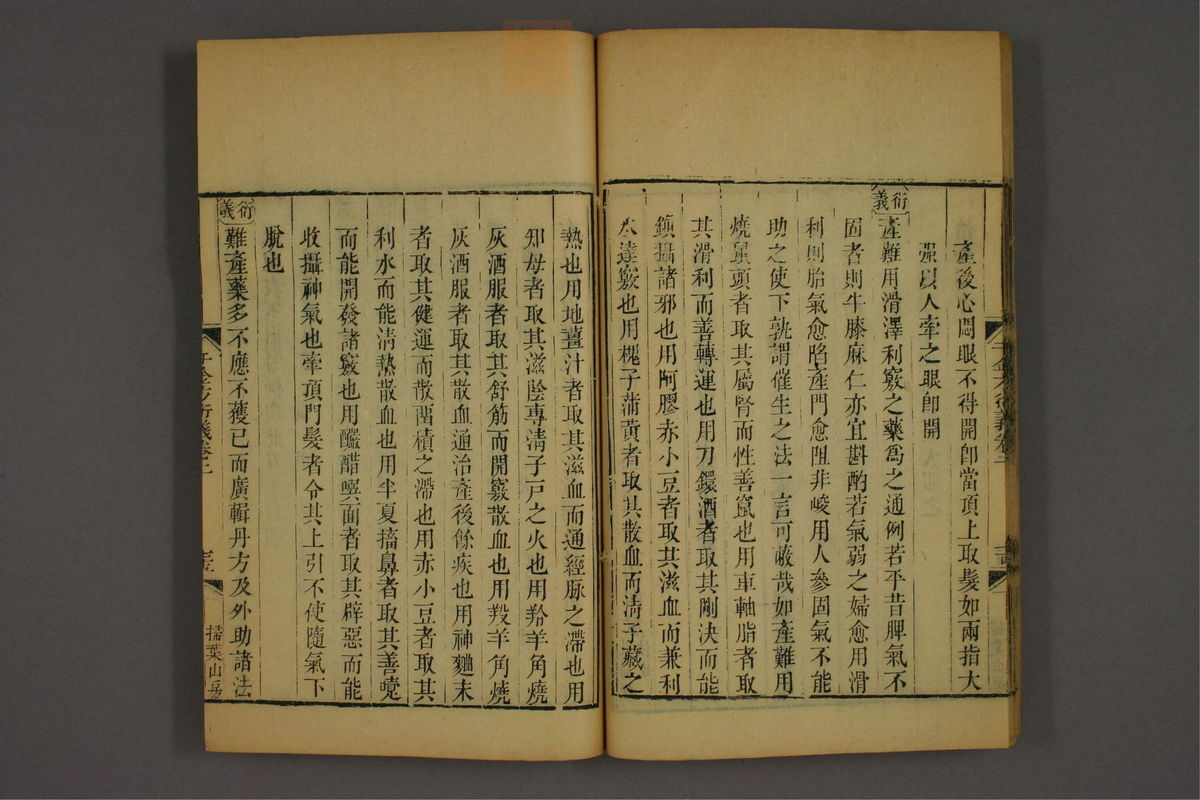 產後心悶眼不得開卽當頂上取髮如兩指大
强以人牽之眼卽開
衍義
產難用滑澤利竅之藥爲之通例若平昔脾氣不
固者則牛膝麻仁亦宜斟酌若氣弱之婦愈用滑
利則胎氣愈陷產門愈阻非峻用人參固氣不能
助之使下孰謂催生之法一言可蔽哉如產難用
燒鼠頭者取其屬腎而性善竄也用車軸脂者取
其滑利而善轉運也用刀鐶酒者取其剛決而能
鎮攝諸邪也用阿膠赤小豆者取其滋血而兼利
水達竅也用槐子蒲黃者取其散血而淸子藏之
熱也用地薑汁者取其滋血而通經脉之滯也用
知母者取其滋陰專淸子戸之火也用羚羊角燒
灰酒服者取其舒筋而開竅散血也用羖羊角燒
灰酒服者取其散血通治產後餘疾也用神麯末
者取其健運而散蓄積之滯也用赤小豆者取其
利水而能淸熱散血也用半夏搐鼻者取其善嚏
而能開發諸竅也用釅醋噀面者取其辟惡而能
收攝神氣也牽頂門髮者令其上引不使隨氣下
脫也
衍義
難產藥多不應不獲已而廣輯丹方及外助諸法
千金方衍義卷二
掃葉山房